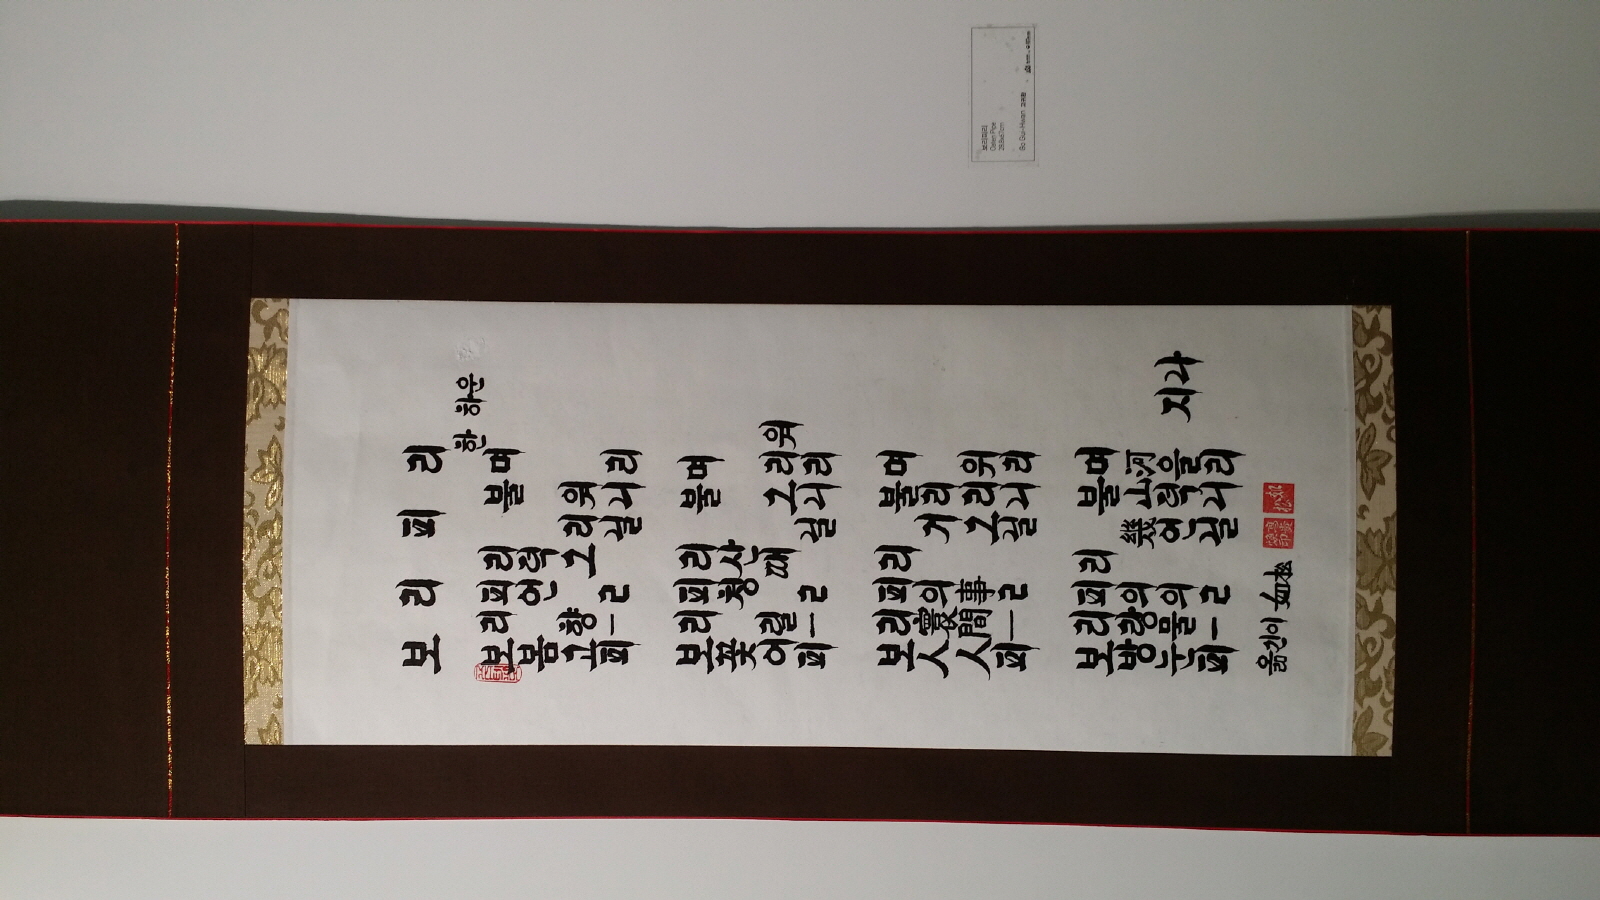 보리피리
한하운
보리피리 불며
봄언덕
고향 그리워
피ㅡㄹ닐니리
보리피리 불며
꽃청산
어릴 때 그리워
피ㅡㄹ닐니리
보리피리 불며
人寰의 거리
人間事 그리워
피ㅡㄹ닐니리
보리피리 불며
방랑의 幾山河
눈물의 언덕을 지나
피ㅡㄹ닐니리
옮긴이 如松
보리피리
Oaten Pipe